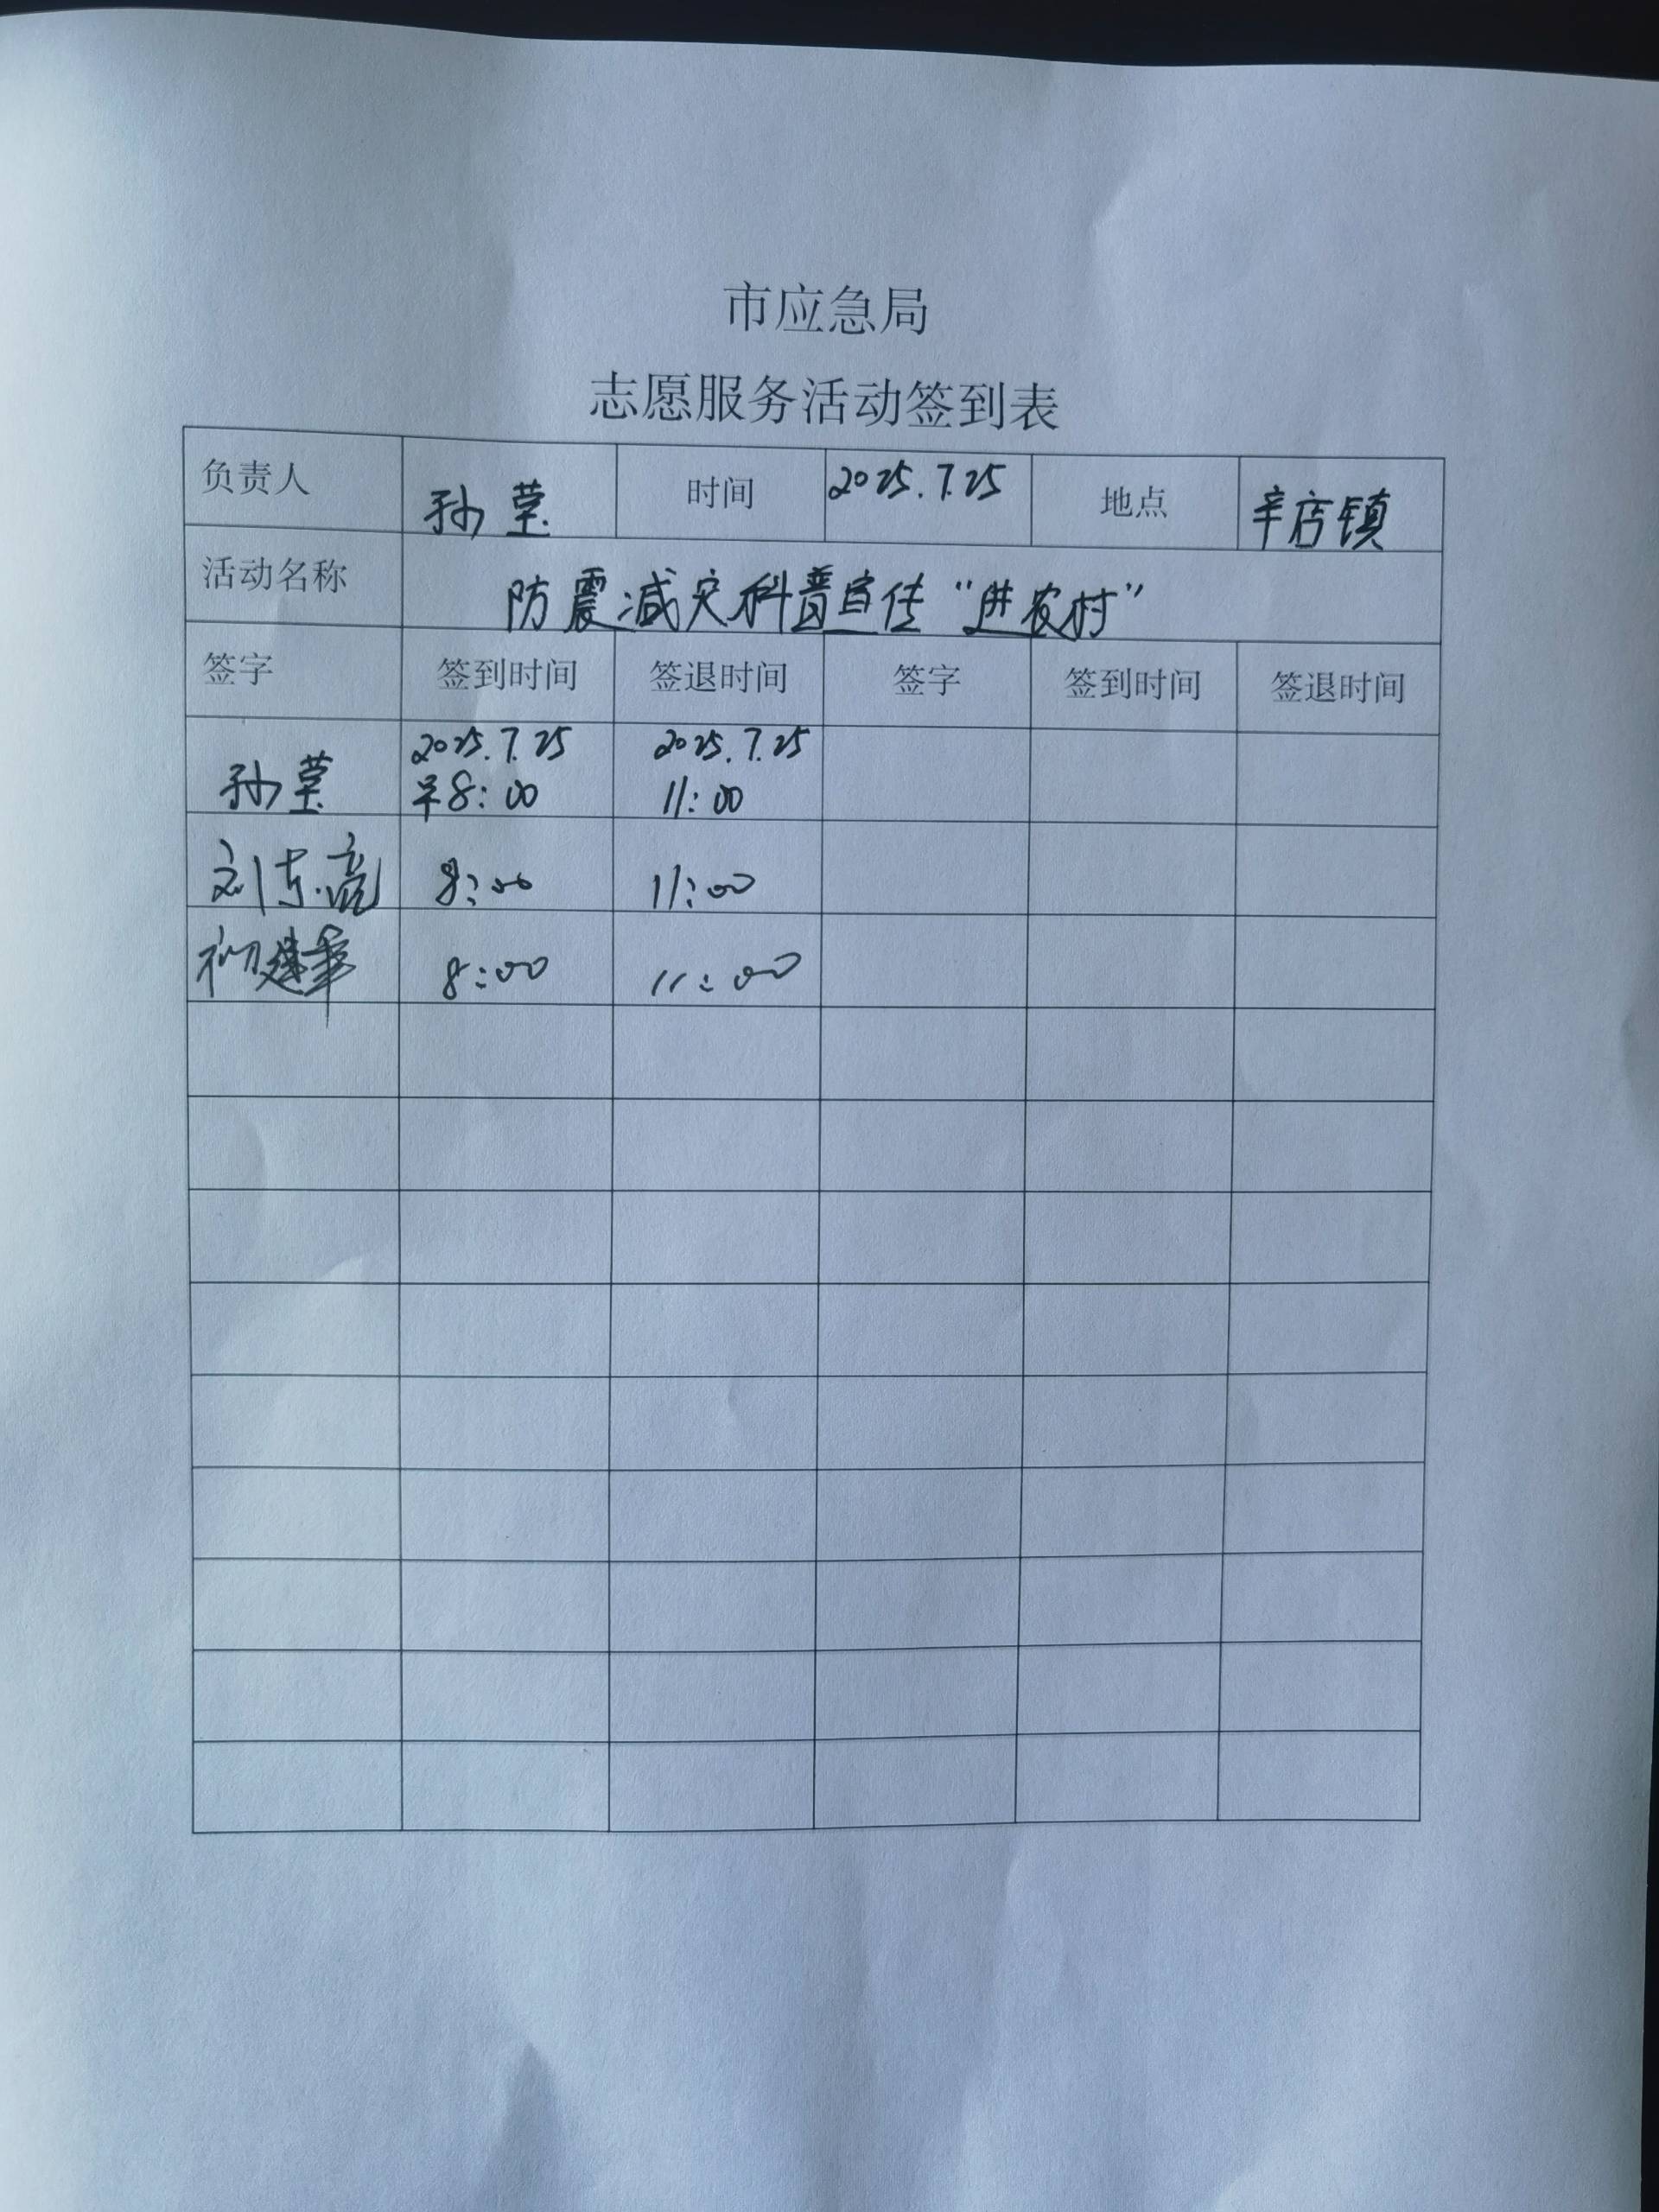 市应急局
志愿服务活动签到表
负责人 孙莹 时间 2025.7.25 地点 辛店镇
活动名称 防震减灾科普宣传“进农村”
签字 签到时间 签退时间 签字 签到时间 签退时间
孙莹 2025.7.25 早8:00 2025.7.25 11:00
刘东亮 8:00 11:00
初建 8:00 11:00